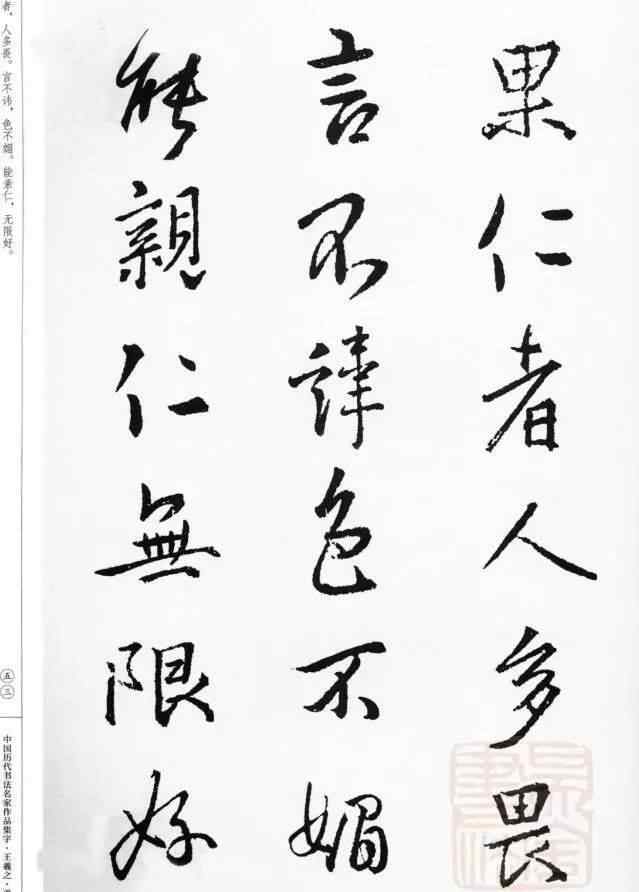 果仁者人多畏
言不諱色不媚
能親仁無限好
者，人多畏。言不讳，色不媚。能亲仁，无限好。
五三
中国历代书法名家作品集字·王羲之·